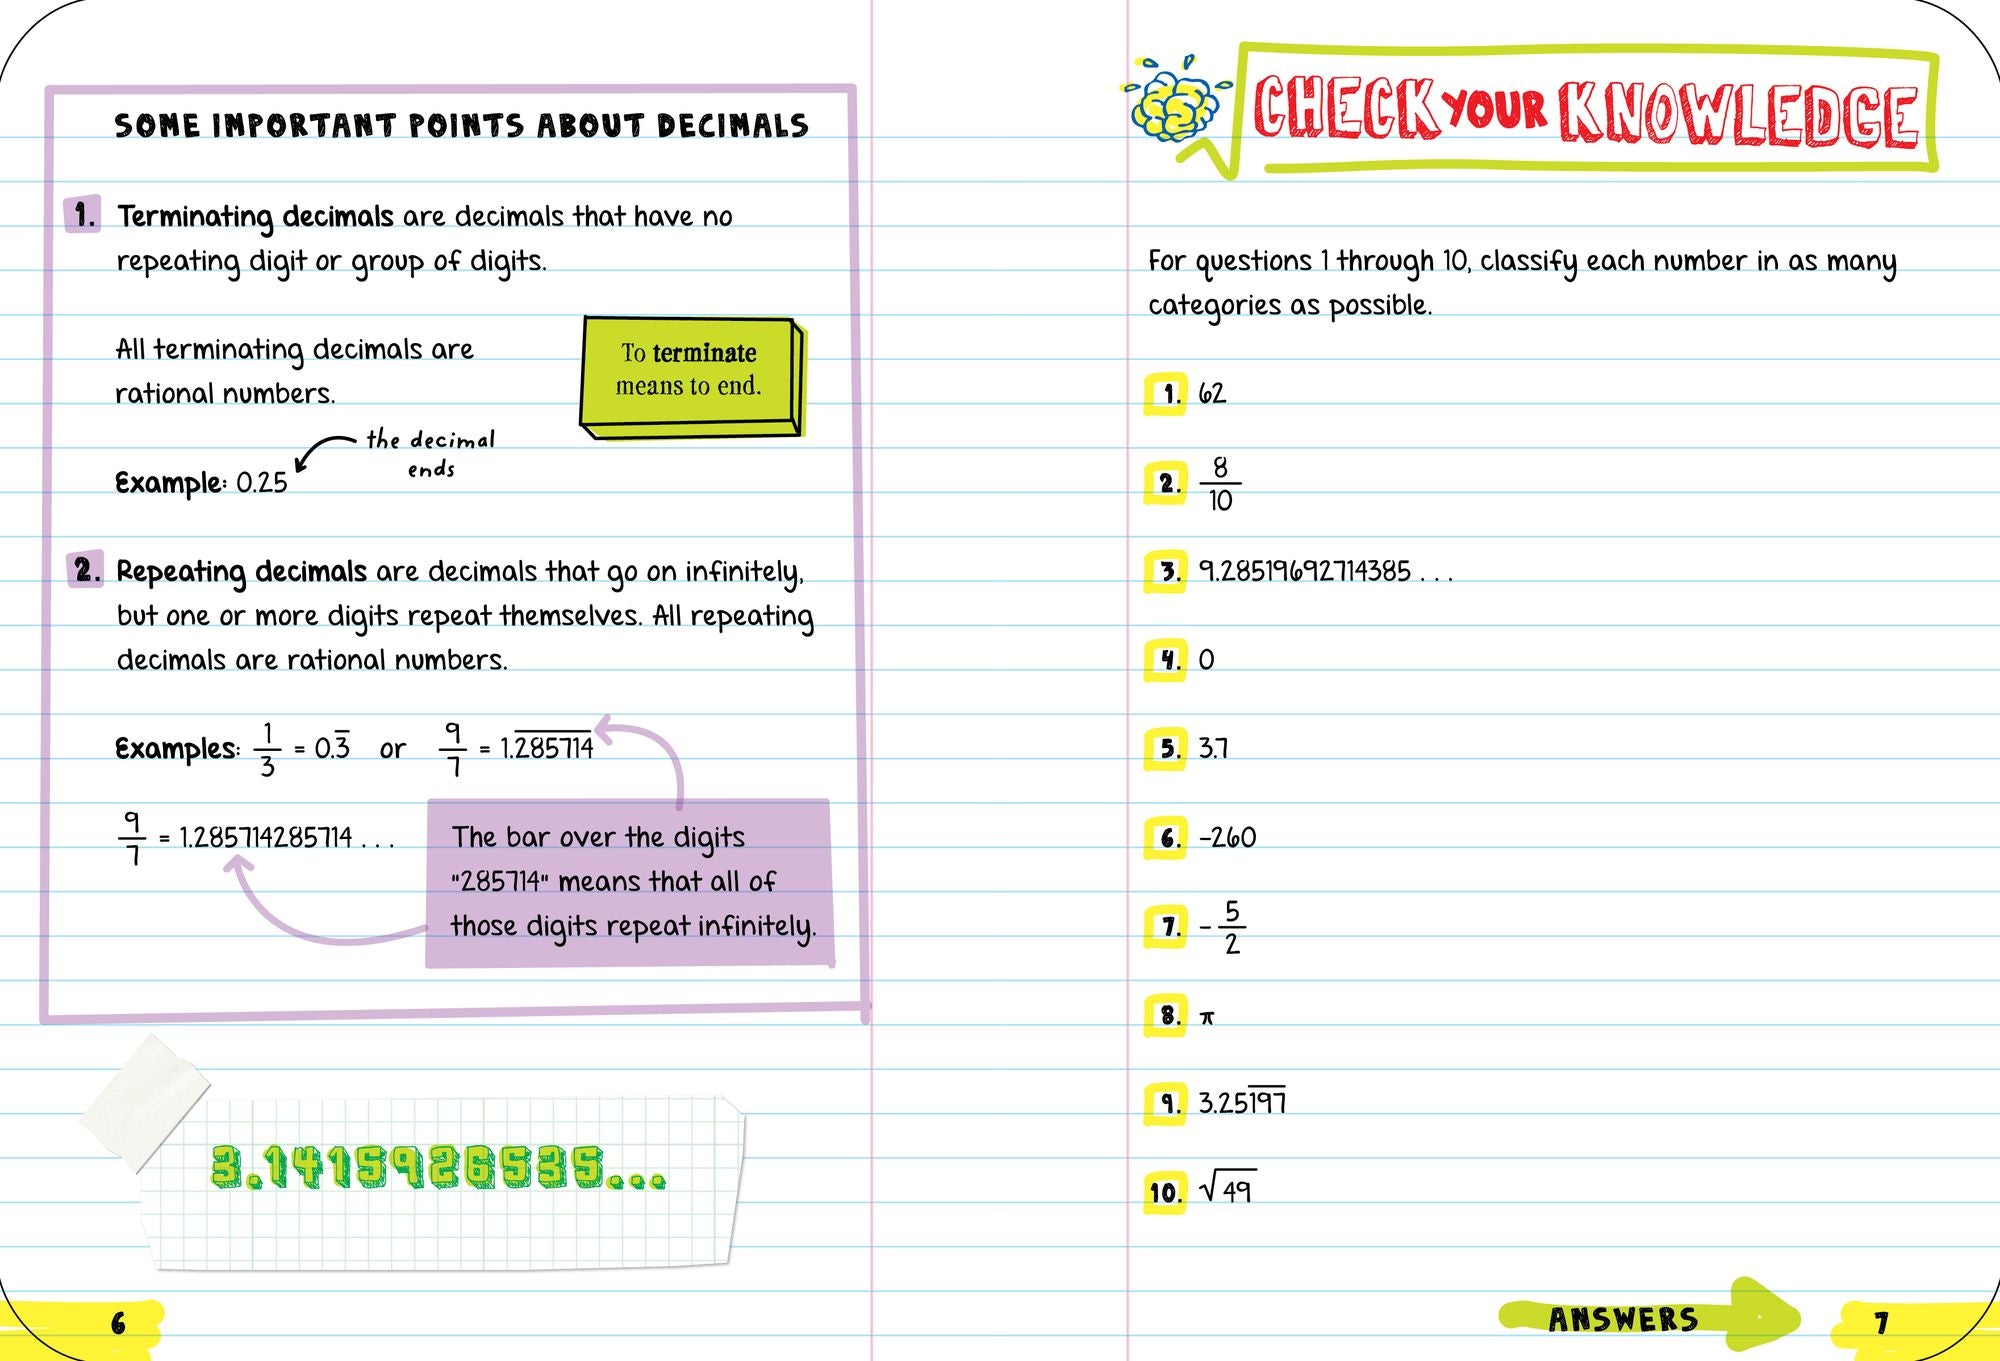 SOME IMPORTANT POINTS ABOUT DECIMALS
1. Terminating decimals are decimals that have no
repeating digit or group of digits.
All terminating decimals are
rational numbers.
To terminate
means to end.
the decimal
ends
Example: 0.25
2. Repeating decimals are decimals that go on infinitely,
but one or more digits repeat themselves. All repeating
decimals are rational numbers.
Examples: 1/3 = 0.3̅ or 9/7 = 1.2̅8̅5̅7̅1̅4̅
9/7 = 1.285714285714 . . .
The bar over the digits
"285714" means that all of
those digits repeat infinitely.
3.1415926535...
6
CHECK YOUR KNOWLEDGE
For questions 1 through 10, classify each number in as many
categories as possible.
1. 62
2. 8/10
3. 9.28519692714385 . . .
4. 0
5. 3.7
6. -260
7. - 5/2
8. π
9. 3.251̅9̅7̅
10. √49
ANSWERS
7